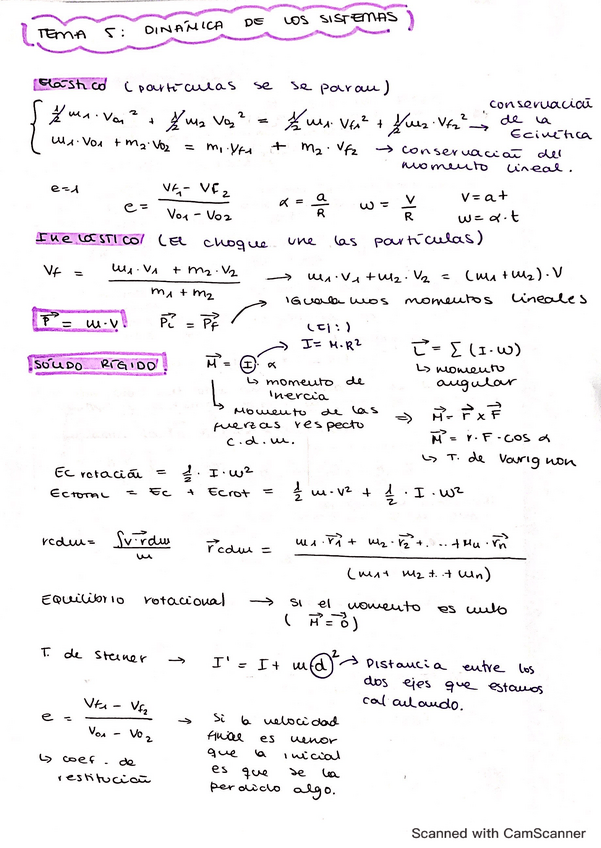 TEMA 5: DINÁMICA DE LOS SISTEMAS
Elástico (partículas se se paran)
1/2 m1 · V01² + 1/2 m2 V02² = 1/2 m1 · Vf1² + 1/2 m2 · Vf2² → conservación de la Ecinética
m1 · V01 + m2 · V02 = m1 · Vf1 + m2 · Vf2 → conservación del momento lineal.
e=1
e = (Vf1 - Vf2) / (V01 - V02)
α = a/R
ω = V/R
V = a t
ω = α · t
INELÁSTICO (El choque une las partículas)
Vf = (m1 · V1 + m2 · V2) / (m1 + m2) → m1 · V1 + m2 · V2 = (m1 + m2) · V
P⃗ = m · V
P⃗i = P⃗f → Igualamos momentos lineales
SÓLIDO RÍGIDO
M⃗ = I · α
(Ej:)
I = M · R²
↳ momento de inercia
↳ Momento de las fuerzas respecto c.d.m.
⇒ M⃗ = r⃗ x F⃗
M⃗ = r · F · cos α
↳ T. de Varignon
L⃗ = Σ (I · ω)
↳ momento angular
Ec rotación = 1/2 · I · ω²
Ectotal = Ec + Ecrot = 1/2 m · V² + 1/2 · I · ω²
rcdm = ∫v · r⃗dm / m
r⃗cdm = (m1 · r⃗1 + m2 · r⃗2 + . .. + Mn · r⃗n) / (m1 + m2 + . + mn)
Equilibrio rotacional → si el momento es nulo
( M⃗ = 0⃗ )
T. de Steiner → I' = I + m · d² → Distancia entre los
dos ejes que estamos
calculando.
e = (Vf1 - Vf2) / (V01 - V02) → Si la velocidad
final es menor
que la inicial
es que se ha
perdido algo.
↳ coef. de
restitución
Scanned with CamScanner